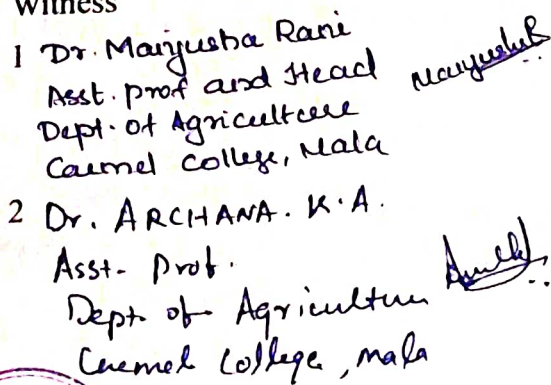 Witness
1 Dr. Manjusha Rani
Asst. prof and Head
Dept. of Agriculture
Carmel College, Mala
ManjushaR
2 Dr. ARCHANA. K. A.
Asst- Prof.
Dept of Agriculture
Carmel College, Mala